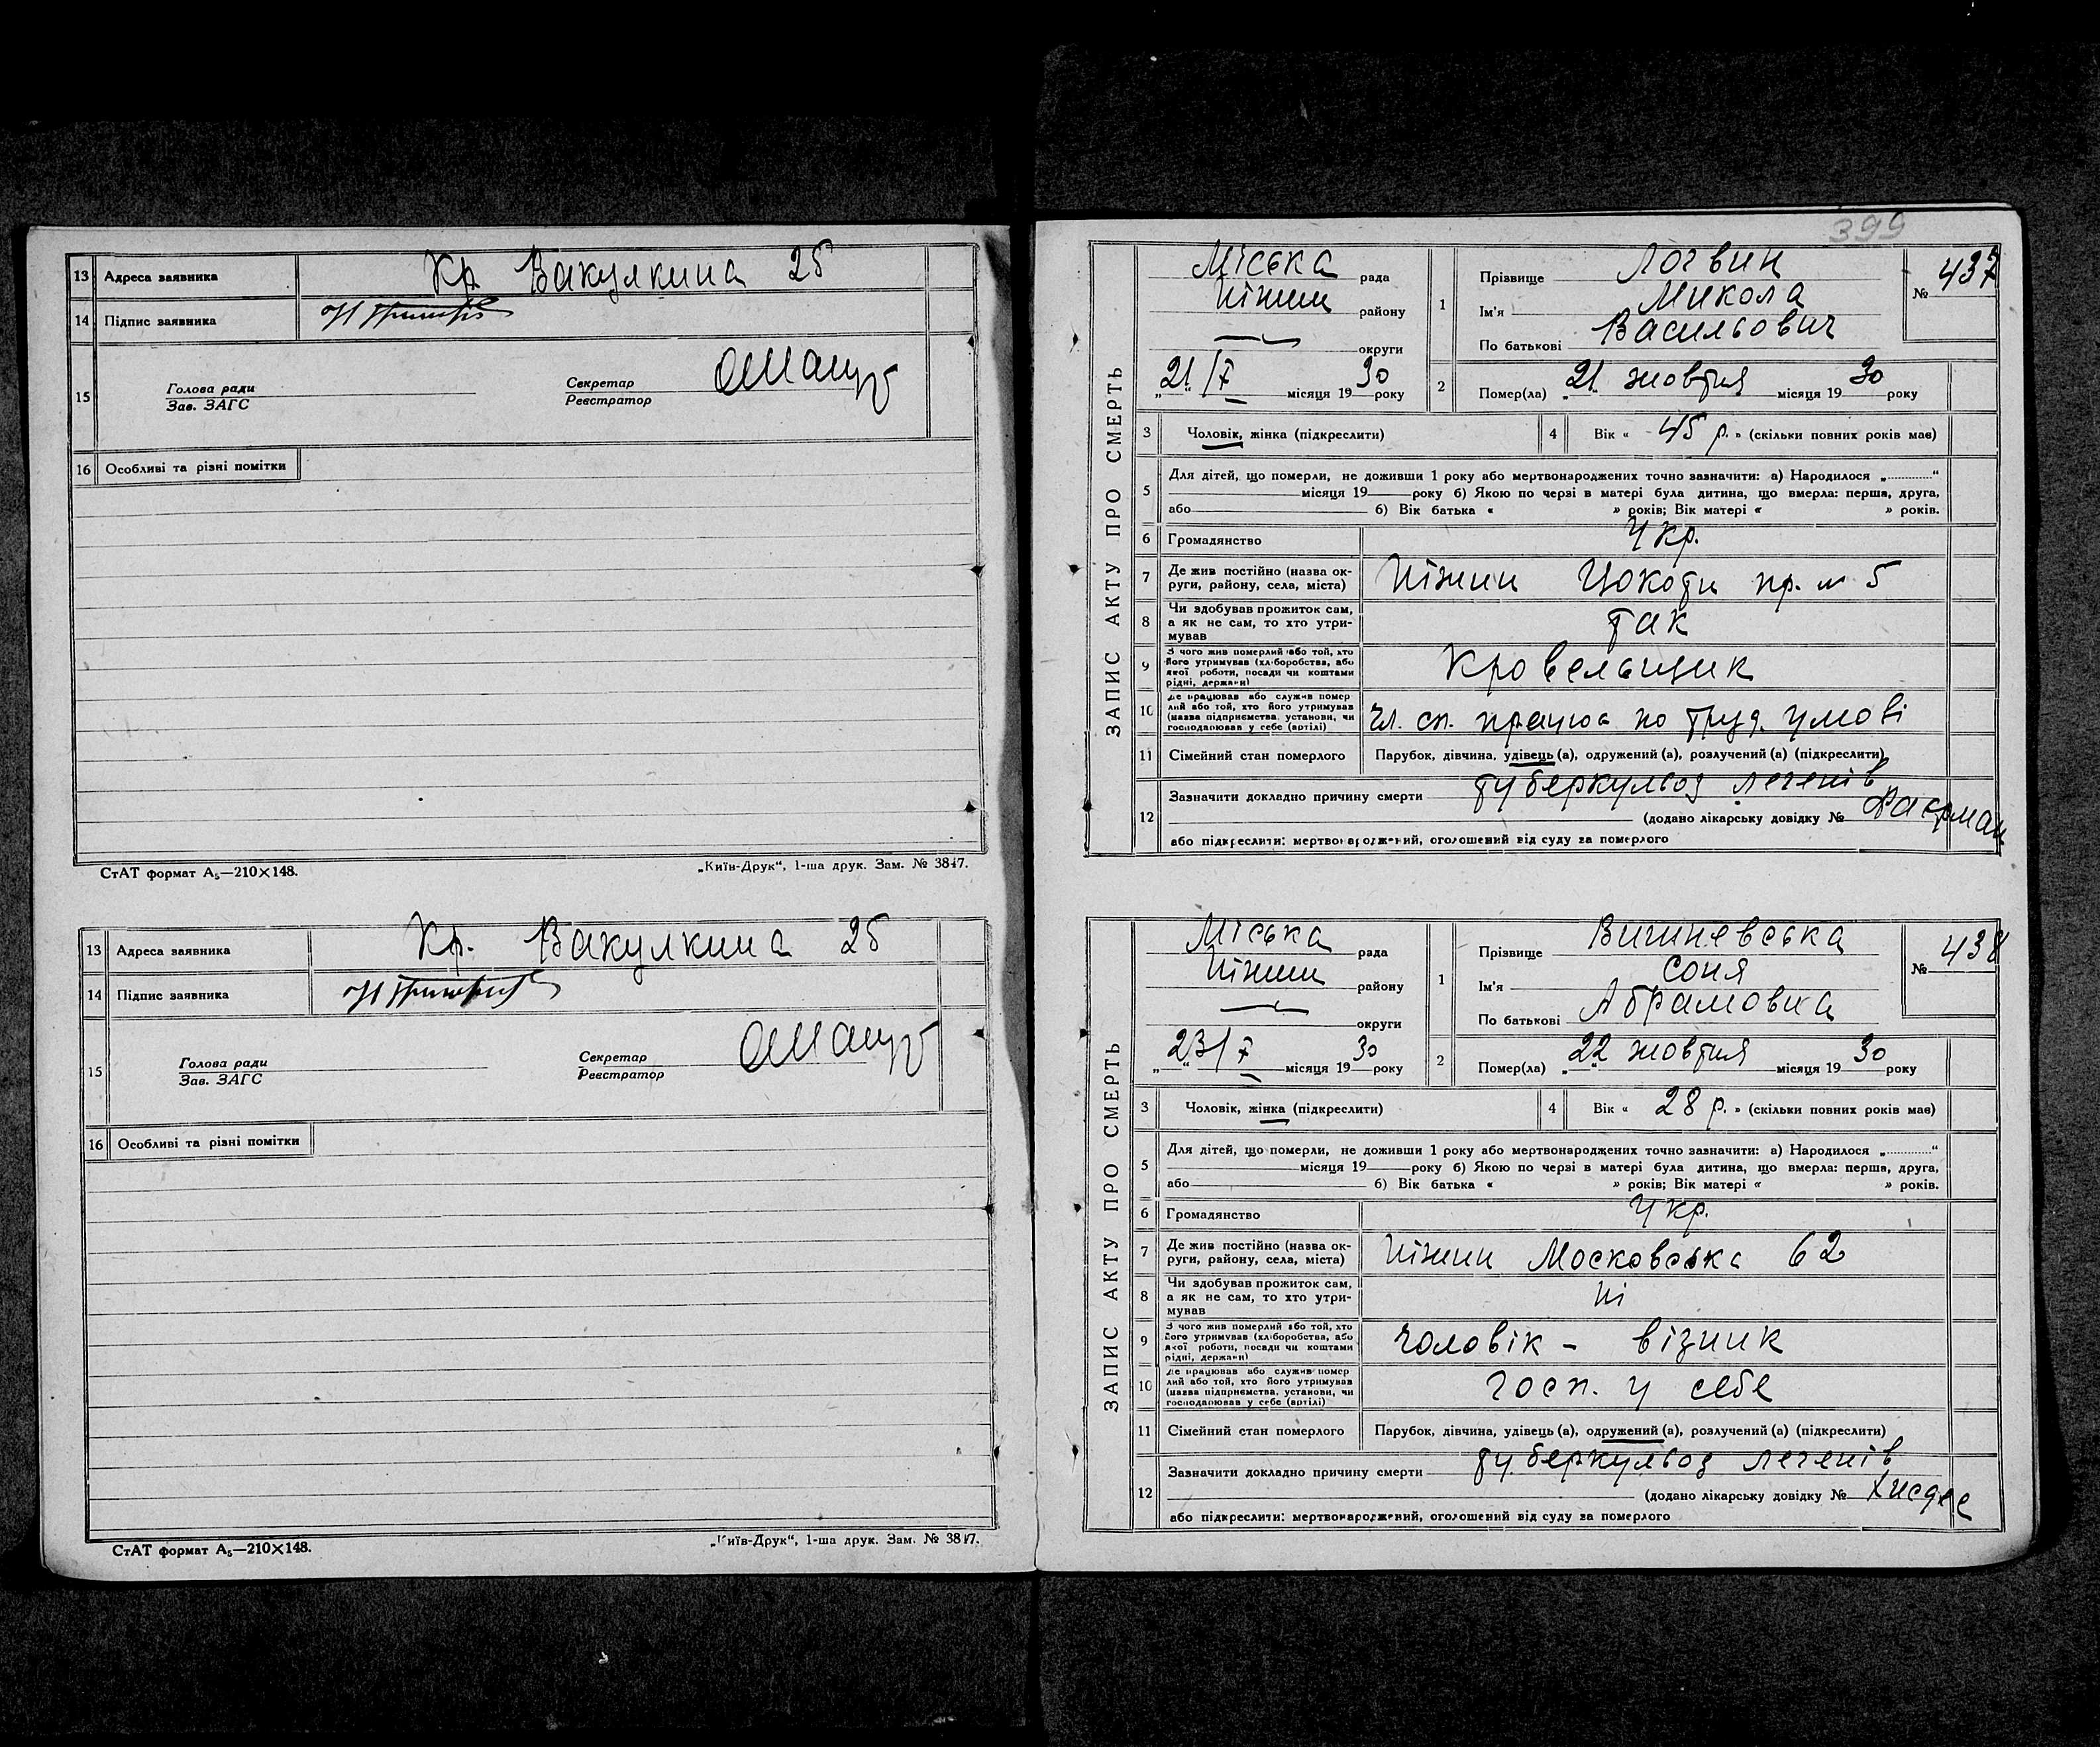 13 Адреса заявника Кр Вакулкина 25
14 Підпис заявника
15 Голова ради Секретар
Зав. ЗАГС Реєстратор
16 Особливі та різні помітки
СтАТ формат А₅—210×148. „Київ-Друк“, 1-ша друк. Зам. № 3847.
13 Адреса заявника Кр. Вакулкина 25
14 Підпис заявника
15 Голова ради Секретар
Зав. ЗАГС Реєстратор
16 Особливі та різні помітки
СтАТ формат А₅—210×148. „Київ-Друк“, 1-ша друк. Зам. № 3847.
399
ЗАПИС АКТУ ПРО СМЕРТЬ
Міська рада
Ніжин району
округи
„21“ /X місяця 1930 року
1 Прізвище Логвин
Ім'я Микола
По батькові Васильович
№ 437
2 Помер(ла) „21“ жовтня місяця 1930 року
3 Чоловік, жінка (підкреслити)
4 Вік «45 р.» (скільки повних років має)
5 Для дітей, що померли, не доживши 1 року або мертвонароджених точно зазначити: а) Народилося „............“
місяця 19 року б) Якою по черзі в матері була дитина, що вмерла: перша, друга,
або б) Вік батька « » років; Вік матері « » років.
6 Громадянство Укр.
7 Де жив постійно (назва ок-
руги, району, села, міста) Ніжин пр. № 5
8 Чи здобував прожиток сам,
а як не сам, то хто утри-
мував так
9 З чого жив померлий або той, хто
його утримував (хліборобства, або
якої роботи, посади чи коштами
рідні, держави) Кровельщик
10 Де працював або служив помер
лий або той, хто його утримував
(назва підприємства, установи, чи
господарював у себе (артілі) чл. сп. працюв по труд. умові
11 Сімейний стан померлого Парубок, дівчина, удівець (а), одружений (а), розлучений (а) (підкреслити)
12 Зазначити докладно причину смерти туберкульоз легенів
(додано лікарську довідку №
або підкреслити: мертвонароджений, оголошений від суду за померлого
ЗАПИС АКТУ ПРО СМЕРТЬ
Міська рада
Ніжин району
округи
„23“ /X місяця 1930 року
1 Прізвище Вишневська
Ім'я Соня
По батькові Абрамовна
№ 438
2 Помер(ла) „22“ жовтня місяця 1930 року
3 Чоловік, жінка (підкреслити)
4 Вік «28 р.» (скільки повних років має)
5 Для дітей, що померли, не доживши 1 року або мертвонароджених точно зазначити: а) Народилося „............“
місяця 19 року б) Якою по черзі в матері була дитина, що вмерла: перша, друга,
або б) Вік батька « » років; Вік матері « » років.
6 Громадянство Укр.
7 Де жив постійно (назва ок-
руги, району, села, міста) Ніжин Московська 62
8 Чи здобував прожиток сам,
а як не сам, то хто утри-
мував ні
9 З чого жив померлий або той, хто
його утримував (хліборобства, або
якої роботи, посади чи коштами
рідні, держави) чоловік - візник
10 Де працював або служив помер
лий або той, хто його утримував
(назва підприємства, установи, чи
господарював у себе (артілі) госп. у себе
11 Сімейний стан померлого Парубок, дівчина, удівець (а), одружений (а), розлучений (а) (підкреслити)
12 Зазначити докладно причину смерти туберкульоз легенів
(додано лікарську довідку №
або підкреслити: мертвонароджений, оголошений від суду за померлого